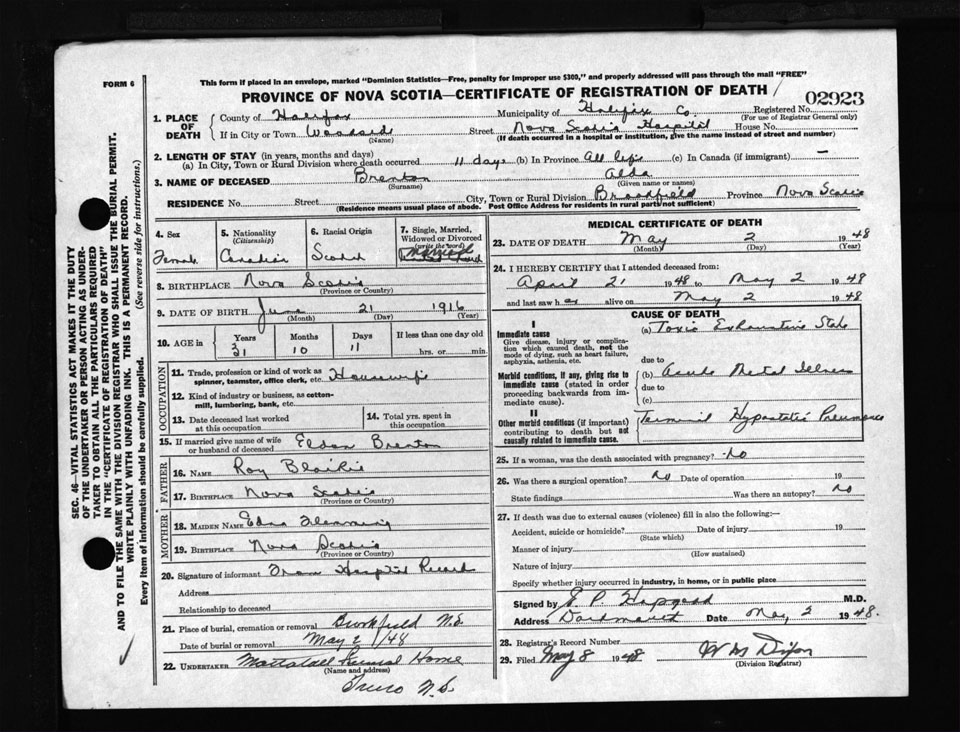 FORM 6
This form if placed in an envelope, marked "Dominion Statistics—Free, penalty for improper use $300," and properly addressed will pass through the mail "FREE"
PROVINCE OF NOVA SCOTIA—CERTIFICATE OF REGISTRATION OF DEATH
02923
1. PLACE OF DEATH
County of Halifax Municipality of Halifax Co. Registered No.
(For use of Registrar General only)
If in City or Town Woodside Street Nova Scotia Hospital House No.
(Name) (If death occurred in a hospital or institution, give the name instead of street and number)
2. LENGTH OF STAY (in years, months and days)
(a) In City, Town or Rural Division where death occurred 11 days (b) In Province All life (c) In Canada (if immigrant) —
3. NAME OF DECEASED Brenton Alda
(Surname) (Given name or names)
RESIDENCE No. Street City, Town or Rural Division Brookfield Province Nova Scotia
(Residence means usual place of abode. Post Office Address for residents in rural parts not sufficient)
4. Sex
Female
5. Nationality
(Citizenship)
Canadian
6. Racial Origin
Scotch
7. Single, Married, Widowed or Divorced
(write the word)
Married
8. BIRTHPLACE Nova Scotia
(Province or Country)
9. DATE OF BIRTH June 21 1916
(Month) (Day) (Year)
10. AGE in
Years Months Days If less than one day old
31 10 11 hrs. or min.
OCCUPATION
11. Trade, profession or kind of work as spinner, teamster, office clerk, etc. Housewife
12. Kind of industry or business, as cotton-mill, lumbering, bank, etc.
13. Date deceased last worked at this occupation
14. Total yrs. spent in this occupation
15. If married give name of wife or husband of deceased Eldon Brenton
FATHER
16. NAME Roy Blaikie
17. BIRTHPLACE Nova Scotia
(Province or Country)
MOTHER
18. MAIDEN NAME Edna
19. BIRTHPLACE Nova Scotia
(Province or Country)
20. Signature of informant From Hospital Record
Address
Relationship to deceased
21. Place of burial, cremation or removal Brookfield N.S.
Date of burial or removal May 2/48
22. UNDERTAKER Mattatall Funeral Home
(Name and address)
Truro N.S.
MEDICAL CERTIFICATE OF DEATH
23. DATE OF DEATH May 2 1948
(Month) (Day)
24. I HEREBY CERTIFY that I attended deceased from:
April 21 1948 to May 2 1948
and last saw her alive on May 2 1948
CAUSE OF DEATH
I
Immediate cause
Give disease, injury or complication which caused death, not the mode of dying, such as heart failure, asphyxia, asthenia, etc.
(a) Toxic Exhaustive State
due to
Morbid conditions, if any, giving rise to immediate cause (stated in order proceeding backwards from immediate cause).
(b) Acute Mental Illness
due to
(c)
II
Other morbid conditions (if important) contributing to death but not causally related to immediate cause.
Terminal Hypostatic Pneumonia
25. If a woman, was the death associated with pregnancy? No
26. Was there a surgical operation? No Date of operation 19
State findings Was there an autopsy? No
27. If death was due to external causes (violence) fill in also the following:—
Accident, suicide or homicide? Date of injury 19
(State which)
Manner of injury
(How sustained)
Nature of injury
Specify whether injury occurred in industry, in home, or in public place
Signed by E P Hapgood M.D.
Address Dartmouth Date May 2 1948.
28. Registrar's Record Number
29. Filed May 8 1948 W M Dixon
(Division Registrar)
SEC. 46—VITAL STATISTICS ACT MAKES IT THE DUTY
OF THE UNDERTAKER OR PERSON ACTING AS UNDER-
TAKER TO OBTAIN ALL THE PARTICULARS REQUIRED
IN THE "CERTIFICATE OF REGISTRATION OF DEATH"
AND TO FILE THE SAME WITH THE DIVISION REGISTRAR WHO SHALL ISSUE THE BURIAL PERMIT.
WRITE PLAINLY WITH UNFADING INK. THIS IS A PERMANENT RECORD.
Every item of information should be carefully supplied. (See reverse side for instructions.)